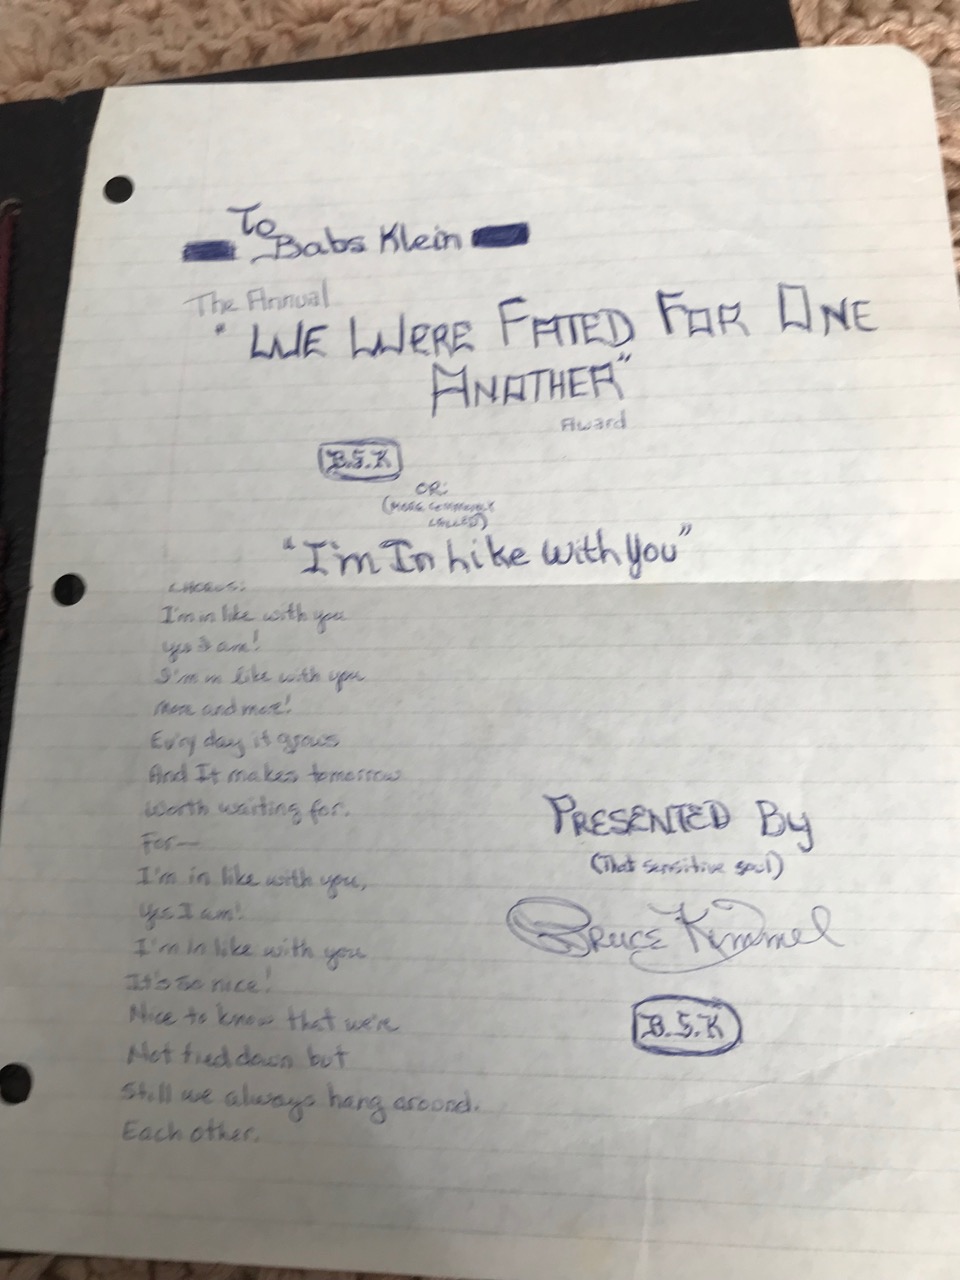 To
Babs Klein
The Annual
"WE WERE FATED FOR ONE
ANOTHER"
Award
B.S.K
OR:
(MORE COMMONLY
CALLED)
"I'm In Like With You"
CHORUS:
I'm in like with you
Yes I am!
I'm in like with you
More and more!
Ev'ry day it grows
And It makes tomorrow
Worth waiting for.
For—
I'm in like with you,
Yes I am!
I'm in like with you
It's so nice!
Nice to know that we're
Not tied down but
Still we always hang around.
Each other.
PRESENTED By
(That sensitive soul)
BRUCE KIMMEL
B.S.K